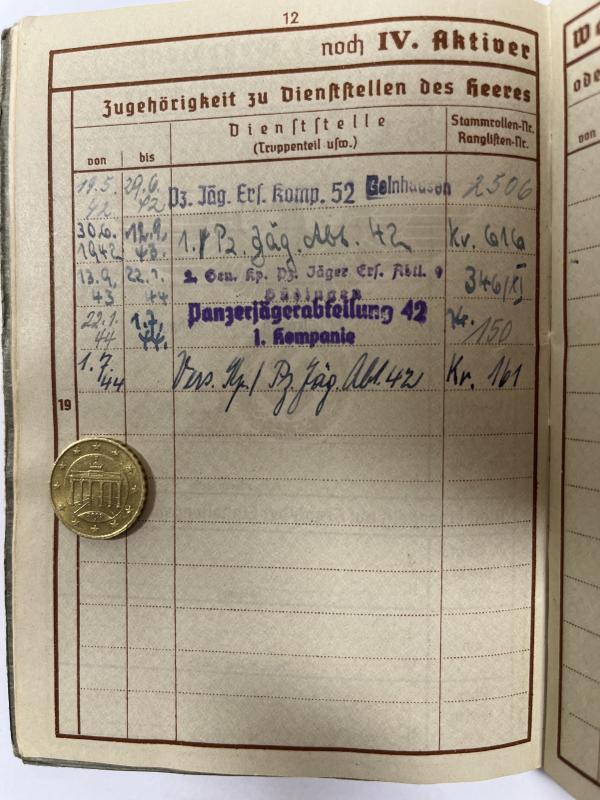 12
noch IV. Aktiver
Zugehörigkeit zu Dienststellen des Heeres
von bis Dienststelle (Truppenteil usw.) Stammrollen-Nr. Ranglisten-Nr.
19.5. 42 29.6. 42 Pz. Jäg. Ers. Komp. 52 Gelnhausen 2506
30.6. 1942 12.9. 43. 1./Pz. Jäg. Abt. 42 Kr. 616
13.9. 43 22.1. 44 2. Gen. Kp. Pz. Jäger Ers. Abtl. 9 Büdingen 346/
22.1. 44 1.7. 44. Panzerjägerabteilung 42 1. Kompanie Kr. 150
1.7. 44 Vers. Kp./Pz. Jäg. Abt. 42 Kr. 161
19
ode
von